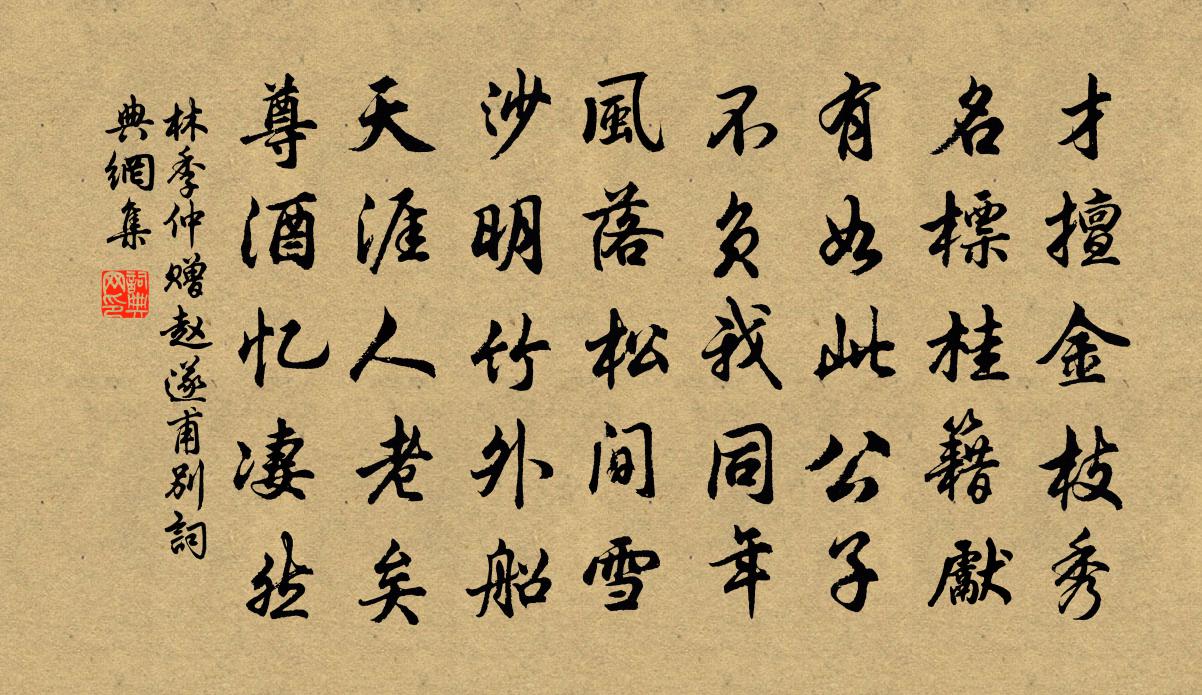 才擅金枝秀
名標桂籍獻
有如此公子
不負我同年
風落松间雪
沙明竹外船
天涯人老矣
尊酒忆凄然
林季仲赠赵遂甫别詞
典網集
詞典
网印